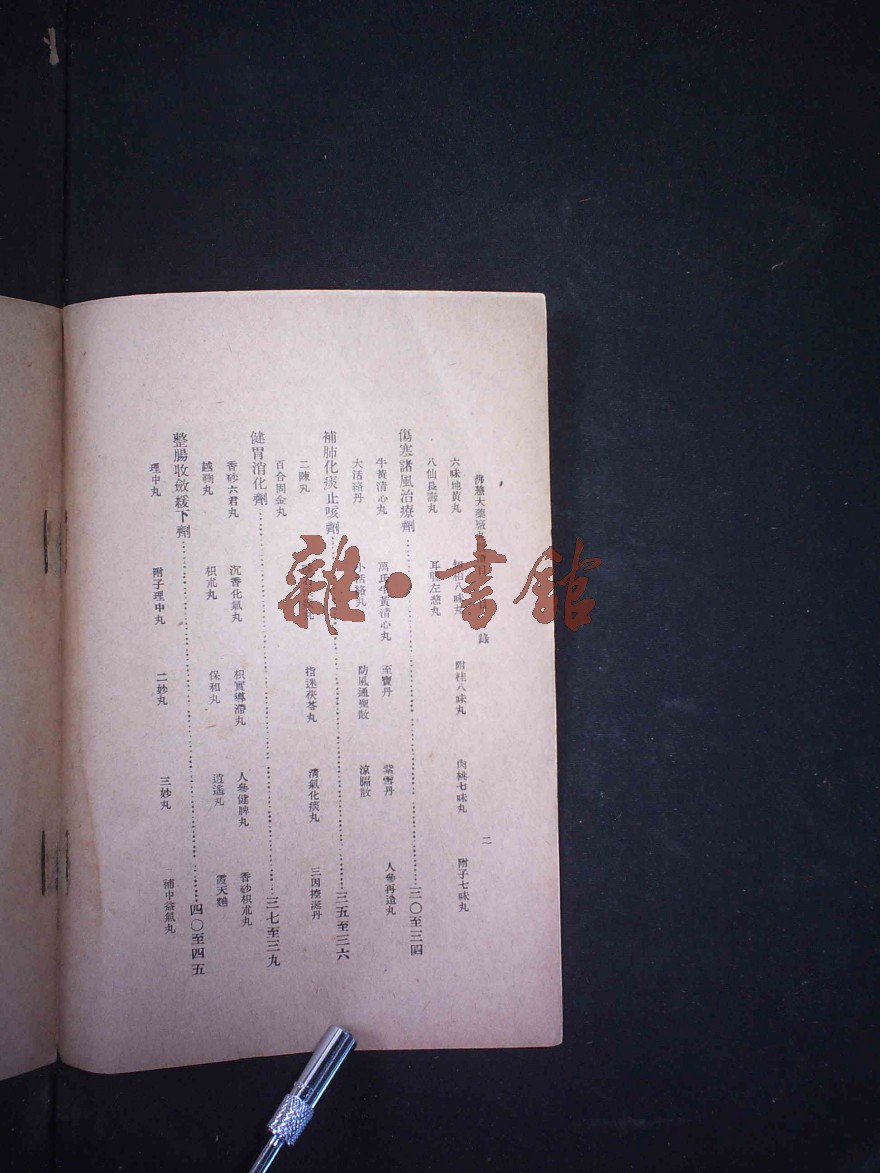 佛慈大藥廠 錄 二
六味地黃丸 柏八味丸 附桂八味丸 肉桃七味丸 附子七味丸
八仙長壽丸 耳聾左慈丸
傷寒諸風治療劑……三〇至三四
牛黃清心丸 萬氏牛黃清心丸 至寶丹 紫雪丹 人參再造丸
大活絡丹 小活絡丸 防風通聖散 涼膈散
補肺化痰止咳劑……三五至三六
二陳丸 丸 指迷茯苓丸 清氣化痰丸 三因控涎丹
百合固金丸
健胃消化劑……三七至三九
香砂六君丸 沉香化氣丸 枳實導滯丸 人參健脾丸 香砂枳朮丸
越鞠丸 枳朮丸 保和丸 逍遙丸 霞天麯
整腸收斂緩下劑……四〇至四五
理中丸 附子理中丸 二妙丸 三妙丸 補中益氣丸
雜·書館